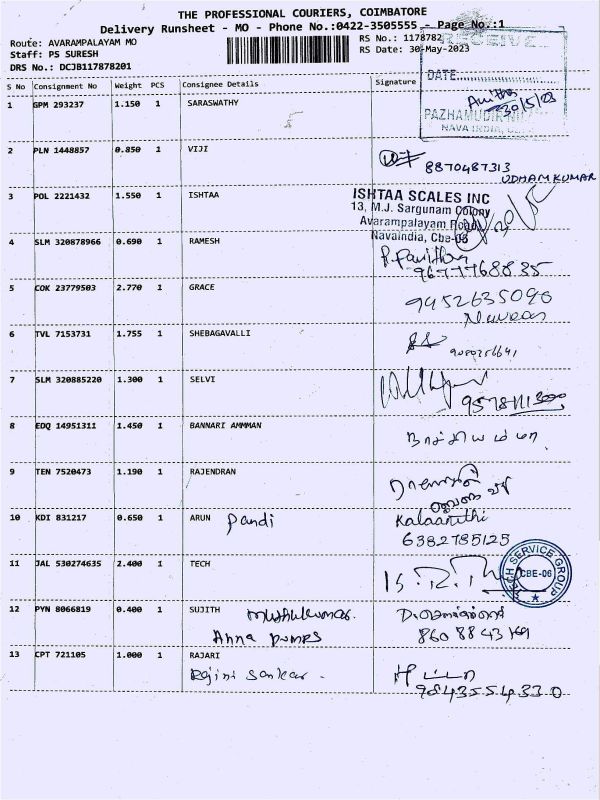 THE PROFESSIONAL COURIERS, COIMBATORE
Delivery Runsheet - MO - Phone No.:0422-3505555 - Page No.:1
Route: AVARAMPALAYAM MO
RS No.: 1178782
Staff: PS SURESH
RS Date: 30-May-2023
DRS No.: DCJB117878201
RECEIVE
DATE
S No Consignment No Weight PCS Consignee Details Signature
1 GPM 293237 1.150 1 SARASWATHY
Anitha
30/5/23
PAZHAMUDIR NI
NAVA INDIA,
2 PLN 1448857 0.850 1 VIJI
8870487313
UDHAMKUMAR
3 POL 2221432 1.550 1 ISHTAA
ISHTAA SCALES INC
13, M.J. Sargunam Colony
Avarampalayam Road
Navaindia, Cbe-06
4 SLM 320878966 0.690 1 RAMESH
P. Pavithra
9677768835
5 COK 23779503 2.770 1 GRACE
9952635090
Naveen
6 TVL 7153731 1.755 1 SHEBAGAVALLI
7 SLM 320885220 1.300 1 SELVI
8 EDQ 14951311 1.450 1 BANNARI AMMMAN
நாச்சியம்மா
9 TEN 7520473 1.190 1 RAJENDRAN
10 KDI 831217 0.650 1 ARUN Pandi
Kalaaruthi
6382785125
11 JAL 530274635 2.400 1 TECH
TECH SERVICE GROUP
CBE-06
12 PYN 8066819 0.400 1 SUJITH
Anna pumps
13 CPT 721105 1.000 1 RAJARI
Rajini Sankar.
9843554330